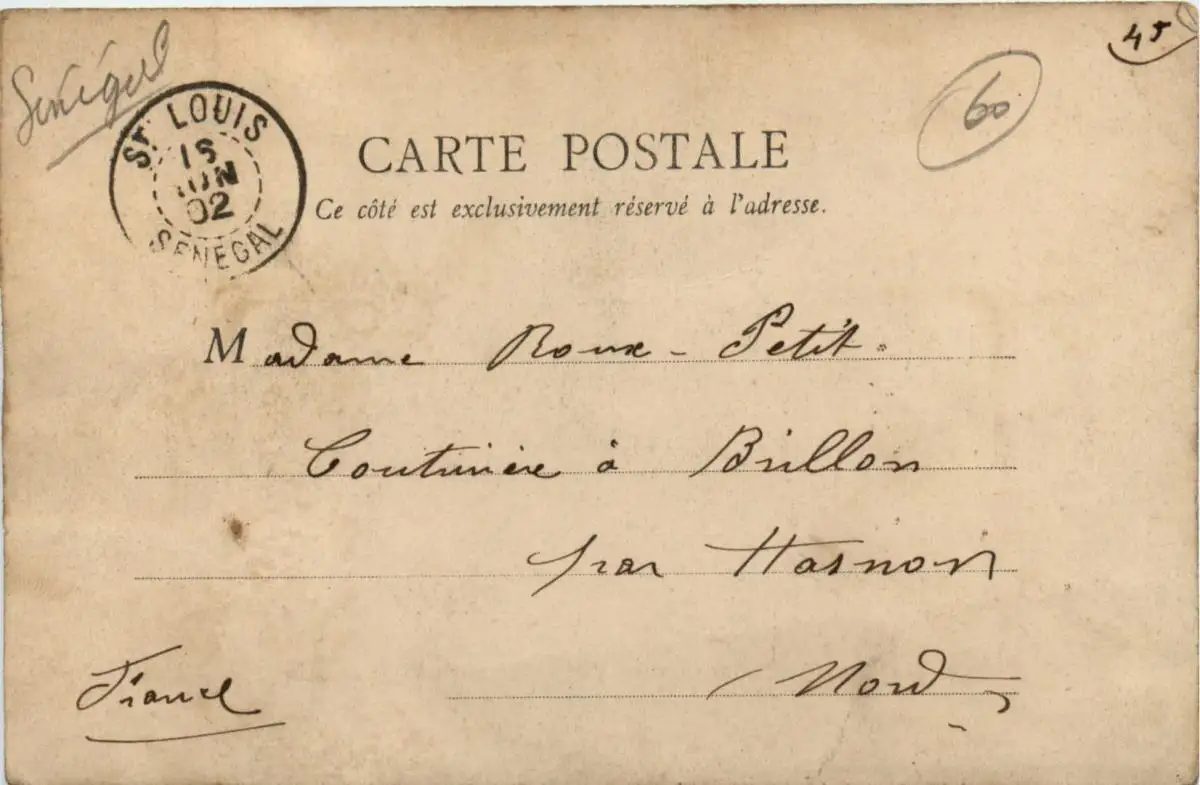 Sénégal
45
60
ST LOUIS
16
JUIN
02
SENEGAL
CARTE POSTALE
Ce côté est exclusivement réservé à l'adresse.
Madame Roux - Petit.
Couturière à Brillon
par Hasnon
(Nord)
France